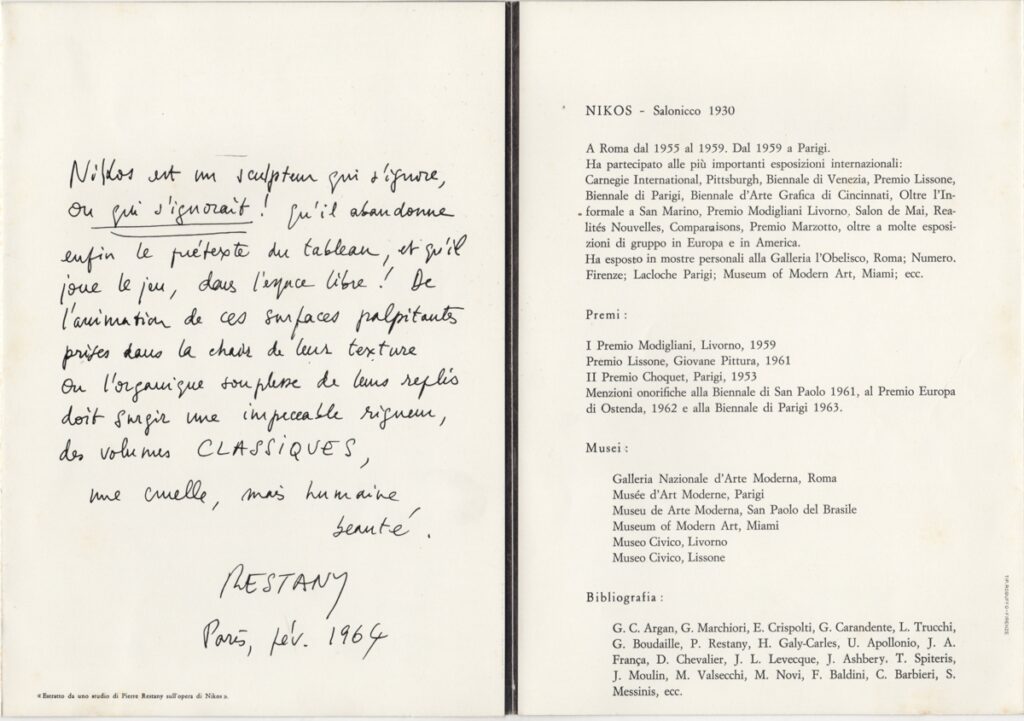 Nikos est un sculpteur qui s'ignore,
ou qui s'ignorait ! Qu'il abandonne
enfin le prétexte du tableau, et qu'il
joue le jeu, dans l'espace libre ! De
l'animation de ces surfaces palpitantes
prises dans la chair de leur texture
ou l'organique souplesse de leurs replis
doit surgir une impeccable rigueur,
des volumes CLASSIQUES,
une cruelle, mais humaine
beauté.
RESTANY
Paris, fév. 1964
« Estratto da uno studio di Pierre Restany sull'opera di Nikos ».
NIKOS - Salonicco 1930
A Roma dal 1955 al 1959. Dal 1959 a Parigi.
Ha partecipato alle più importanti esposizioni internazionali:
Carnegie International, Pittsburgh, Biennale di Venezia, Premio Lissone,
Biennale di Parigi, Biennale d'Arte Grafica di Cincinnati, Oltre l'In-
formale a San Marino, Premio Modigliani Livorno, Salon de Mai, Rea-
lités Nouvelles, Comparaisons, Premio Marzotto, oltre a molte esposi-
zioni di gruppo in Europa e in America.
Ha esposto in mostre personali alla Galleria l'Obelisco, Roma; Numero.
Firenze; Lacloche Parigi; Museum of Modern Art, Miami; ecc.
Premi :
I Premio Modigliani, Livorno, 1959
Premio Lissone, Giovane Pittura, 1961
II Premio Choquet, Parigi, 1953
Menzioni onorifiche alla Biennale di San Paolo 1961, al Premio Europa
di Ostenda, 1962 e alla Biennale di Parigi 1963.
Musei :
Galleria Nazionale d'Arte Moderna, Roma
Musée d'Art Moderne, Parigi
Museu de Arte Moderna, San Paolo del Brasile
Museum of Modern Art, Miami
Museo Civico, Livorno
Museo Civico, Lissone
Bibliografia :
G. C. Argan, G. Marchiori, E. Crispolti, G. Carandente, L. Trucchi,
G. Boudaille, P. Restany, H. Galy-Carles, U. Apollonio, J. A.
França, D. Chevalier, J. L. Levecque, J. Ashbery. T. Spiteris,
J. Moulin, M. Valsecchi, M. Novi, F. Baldini, C. Barbieri, S.
Messinis, ecc.